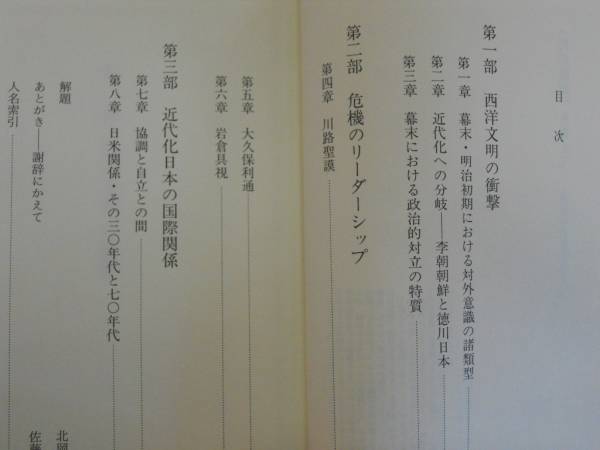 目次
第一部　西洋文明の衝撃
第一章　幕末・明治初期における対外意識の諸類型
第二章　近代化への分岐――李朝朝鮮と徳川日本
第三章　幕末における政治的対立の特質
第二部　危機のリーダーシップ
第四章　川路聖謨
第五章　大久保利通
第六章　岩倉具視
第三部　近代化日本の国際関係
第七章　協調と自立との間
第八章　日米関係・その三〇年代と七〇年代
解題　北岡
あとがき――謝辞にかえて　佐藤
人名索引